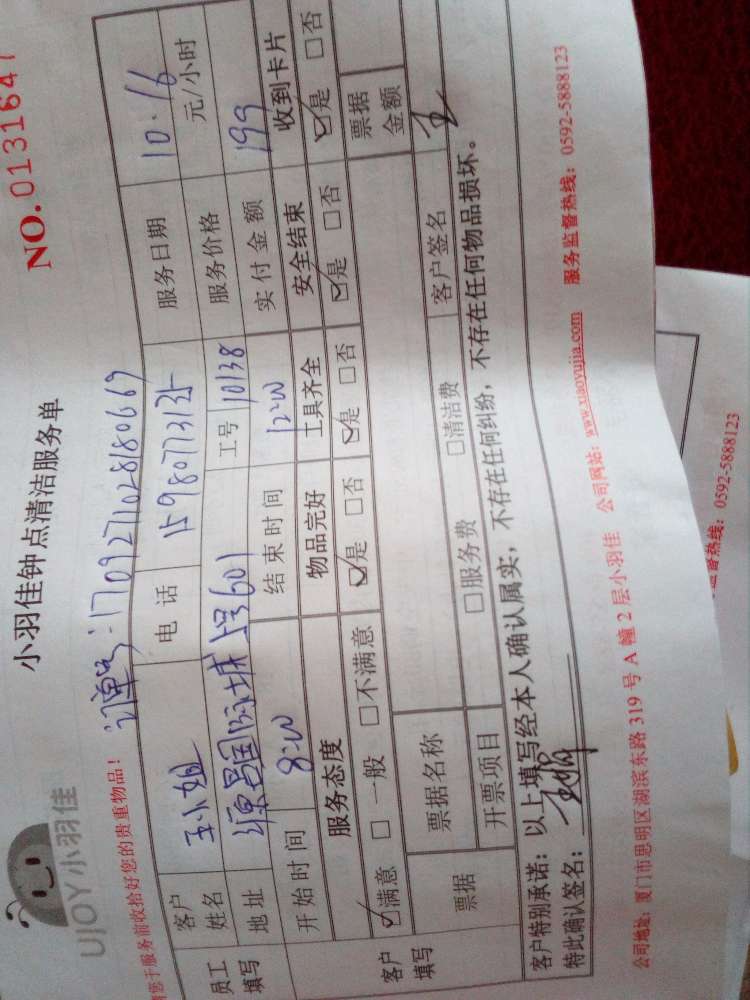 UJOY小羽佳
小羽佳钟点清洁服务单
NO.0131641
请您于服务前收拾好您的贵重物品!
订单号:170927102818066９
员工填写 客户姓名 王小姐 电话 15980773135 服务日期 10.16
地址 源昌国际城 601 工号 10138 服务价格 元/小时
开始时间 8:00 结束时间 12:00 实付金额 199
客户填写 服务态度 物品完好 工具齐全 安全结束 收到卡片
☑满意 □一般 □不满意 ☑是 □否 ☑是 □否 ☑是 □否 ☑是 □否
票据 票据名称 票据金额
开票项目 □服务费 □清洁费 客户签名 王
客户特别承诺:以上填写经本人确认属实,不存在任何纠纷,不存在任何物品损坏。
特此确认签名:
公司地址:厦门市思明区湖滨东路 319 号 A 幢 2 层小羽佳 公司网站:www.xiaoyujia.com 服务监督热线:0592-5888123
监督热线:0592-5888123